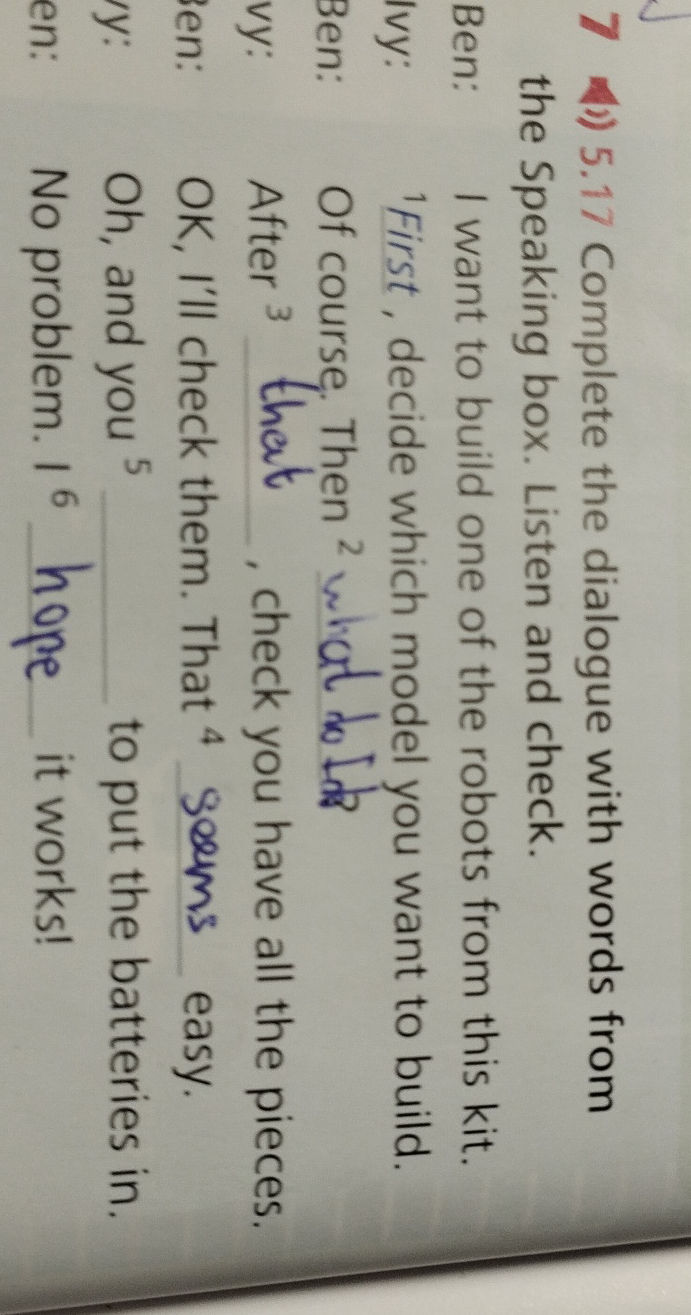 7 5.17 Complete the dialogue with words from
the Speaking box. Listen and check.
Ben: I want to build one of the robots from this kit.
Ivy: ¹First, decide which model you want to build.
Ben: Of course. Then ² what do I do?
vy: After ³ that, check you have all the pieces.
Ben: OK, I'll check them. That ⁴ seems easy.
vy: Oh, and you ⁵ ______ to put the batteries in.
en: No problem. I ⁶ hope it works!